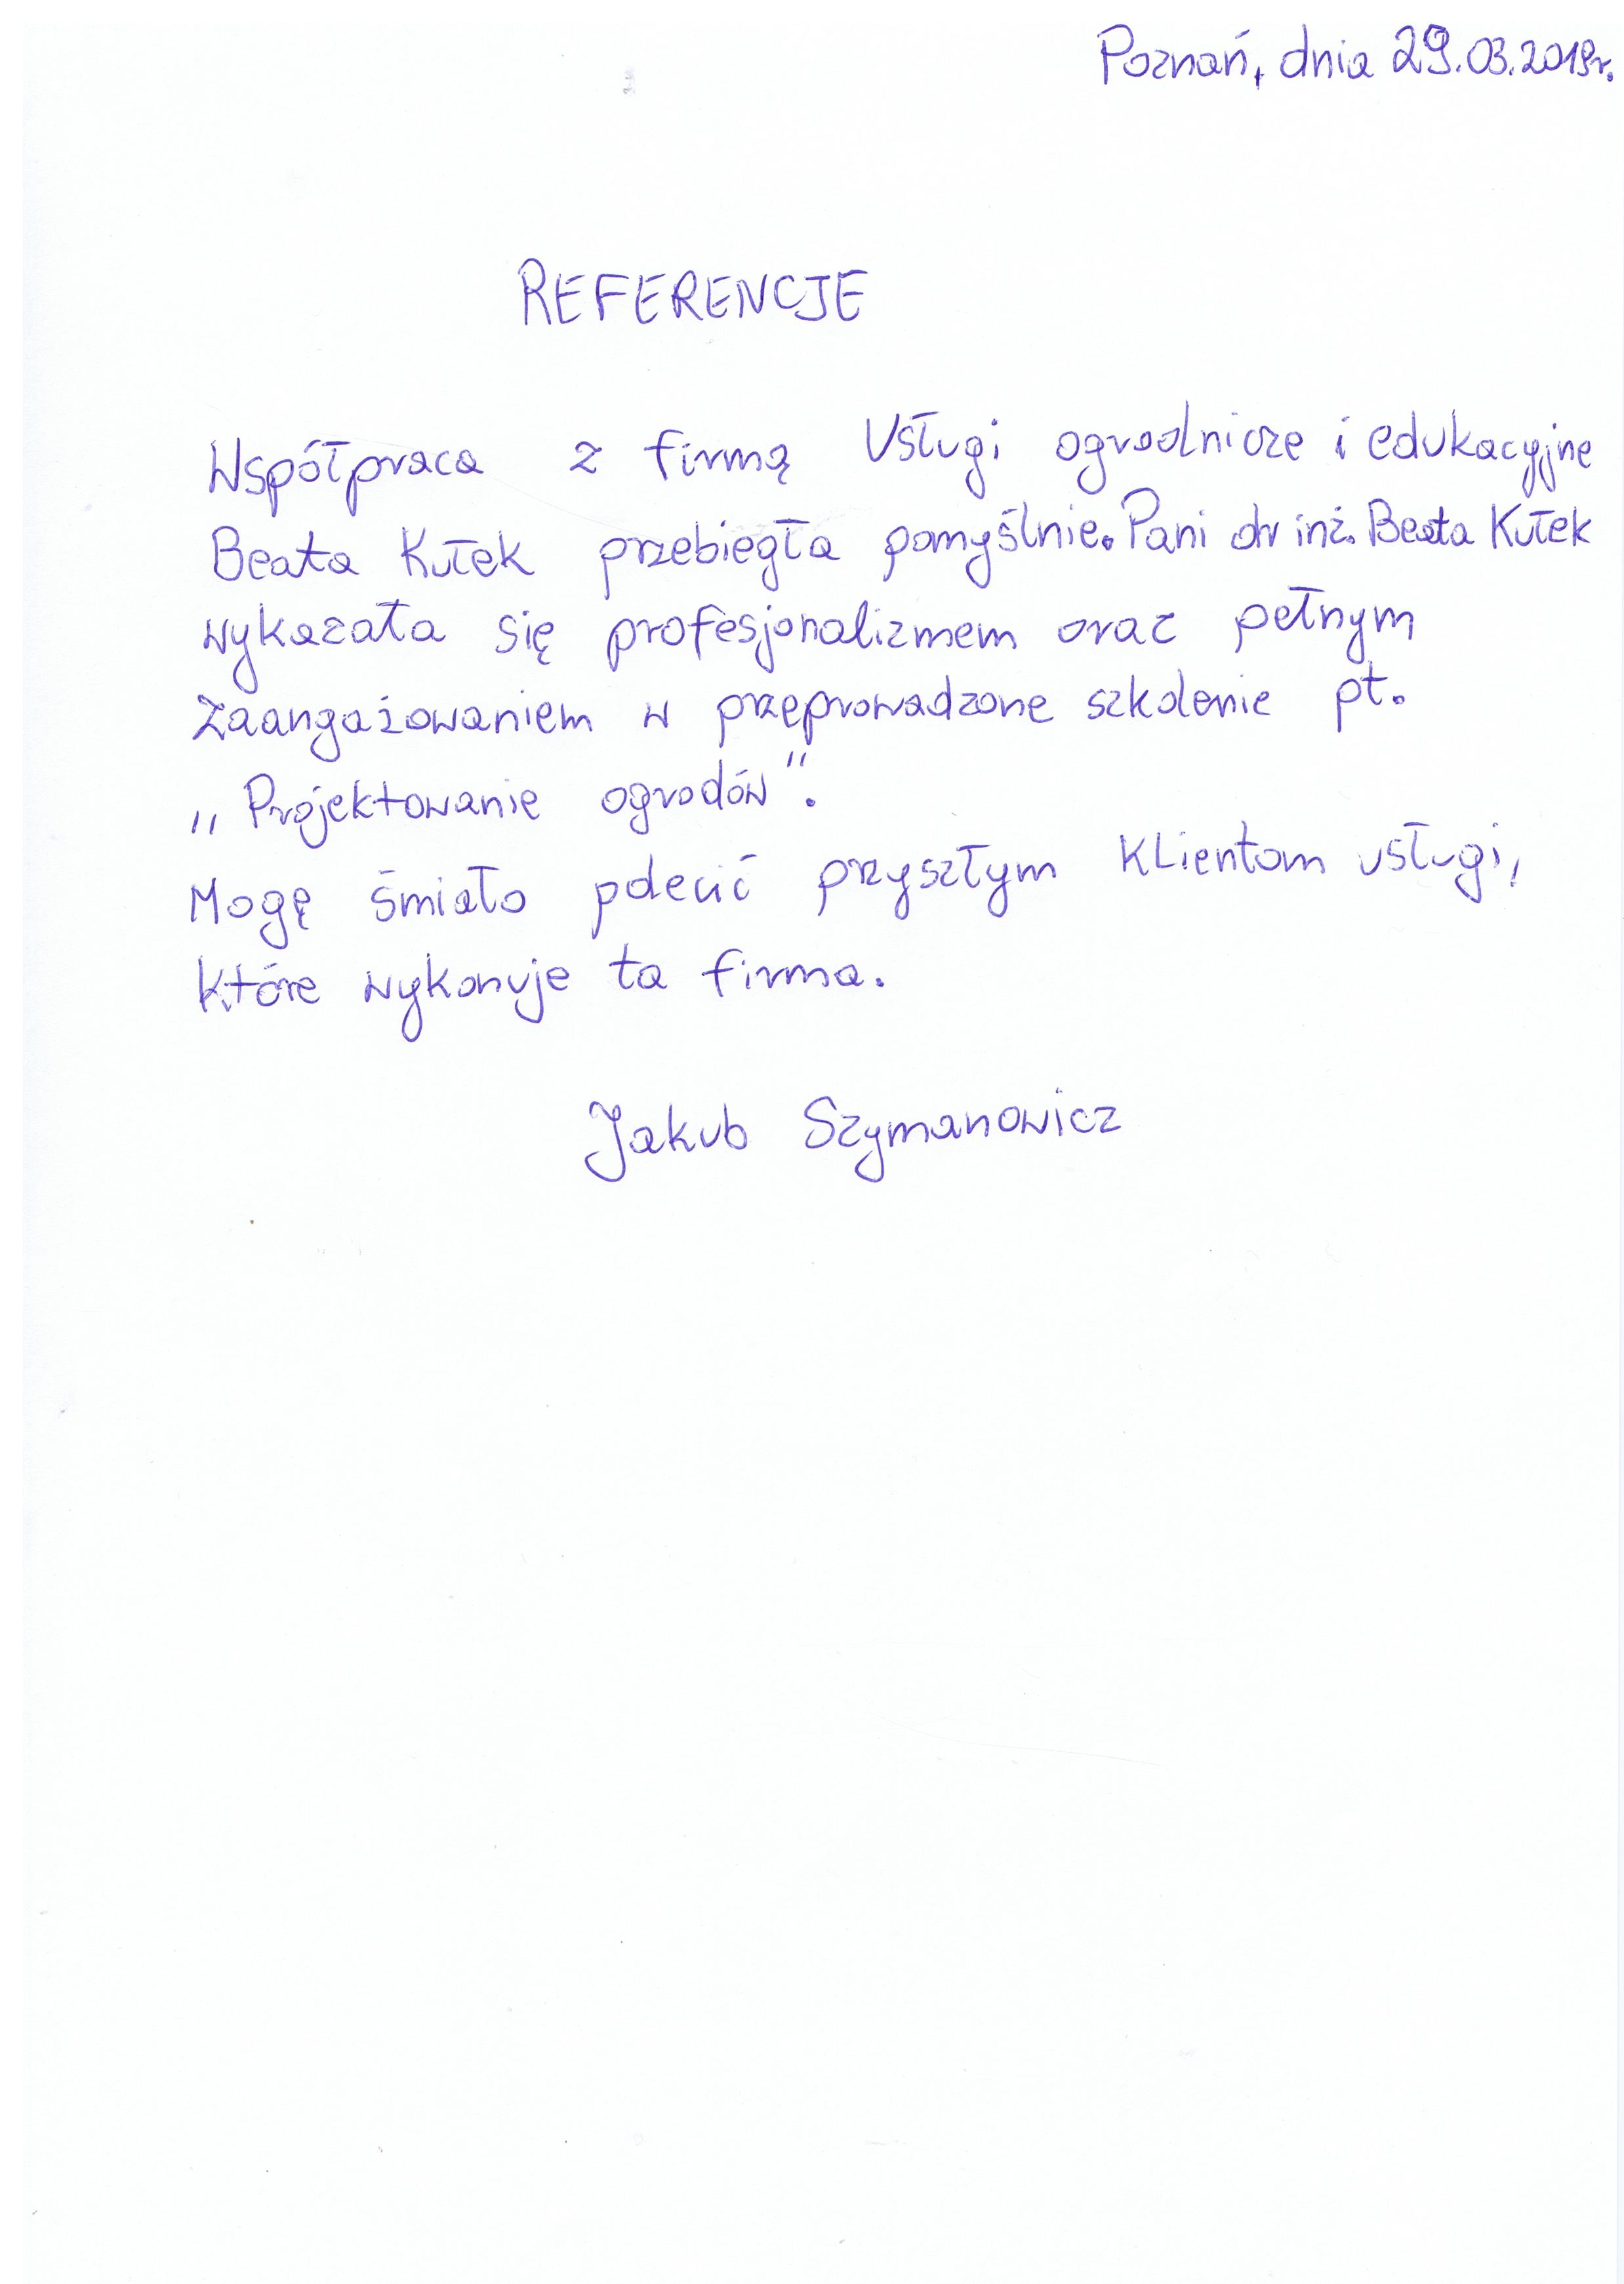 Poznań, dnia 29.03.2019r.
REFERENCJE
Współpraca z firmą Usługi ogrodnicze i edukacyjne
Beata Kułek przebiegła pomyślnie. Pani dr inż. Beata Kułek
wykazała się profesjonalizmem oraz pełnym
zaangażowaniem w przeprowadzone szkolenie pt.
„Projektowanie ogrodów”.
Mogę śmiało polecić przyszłym klientom usługi,
które wykonuje ta firma.
Jakub Szymanowicz